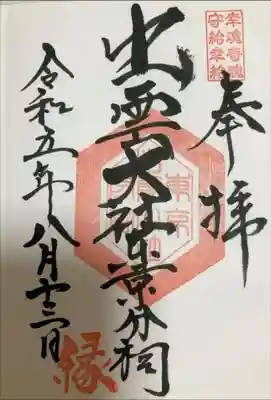 幸魂奇魂
守給幸給
奉拝
出雲大社東京分祠
令和五年八月十三日
縁